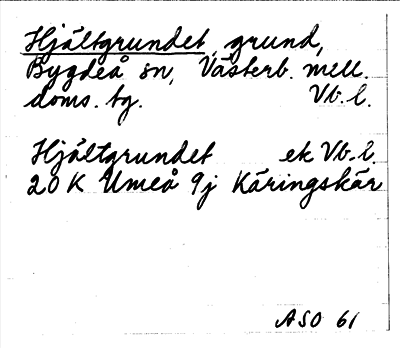 Hjältgrundet, grund,
Bygdeå sn, Västerb. mell.
doms. tg. Vb. l.
Hjältgrundet ek Vb. l.
20 K Umeå 9j Käringskär
ASO 61